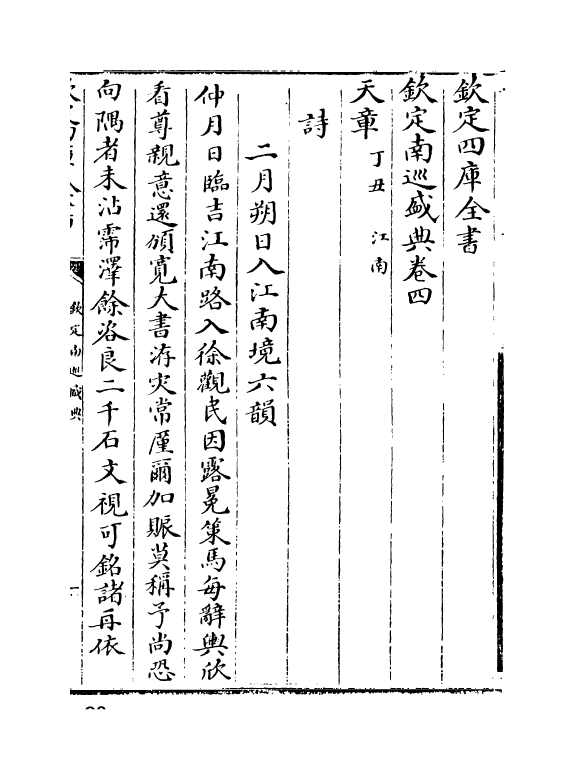 欽定四庫全書
欽定南巡盛典卷四
天章 丁丑 江南
詩
二月朔日入江南境六韻
仲月日臨吉江南路入徐觀民因露冕策馬每辭輿欣
看尊親意還頒寬大書洊災常廑爾加賑莫稱予尚恐
向隅者未沾霈澤餘咨良二千石文視可銘諸再依
欽定南巡盛典
一